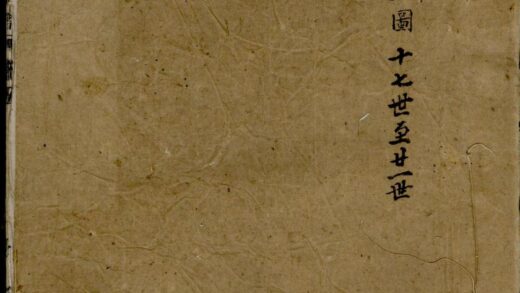 圖 十七世至廿一世